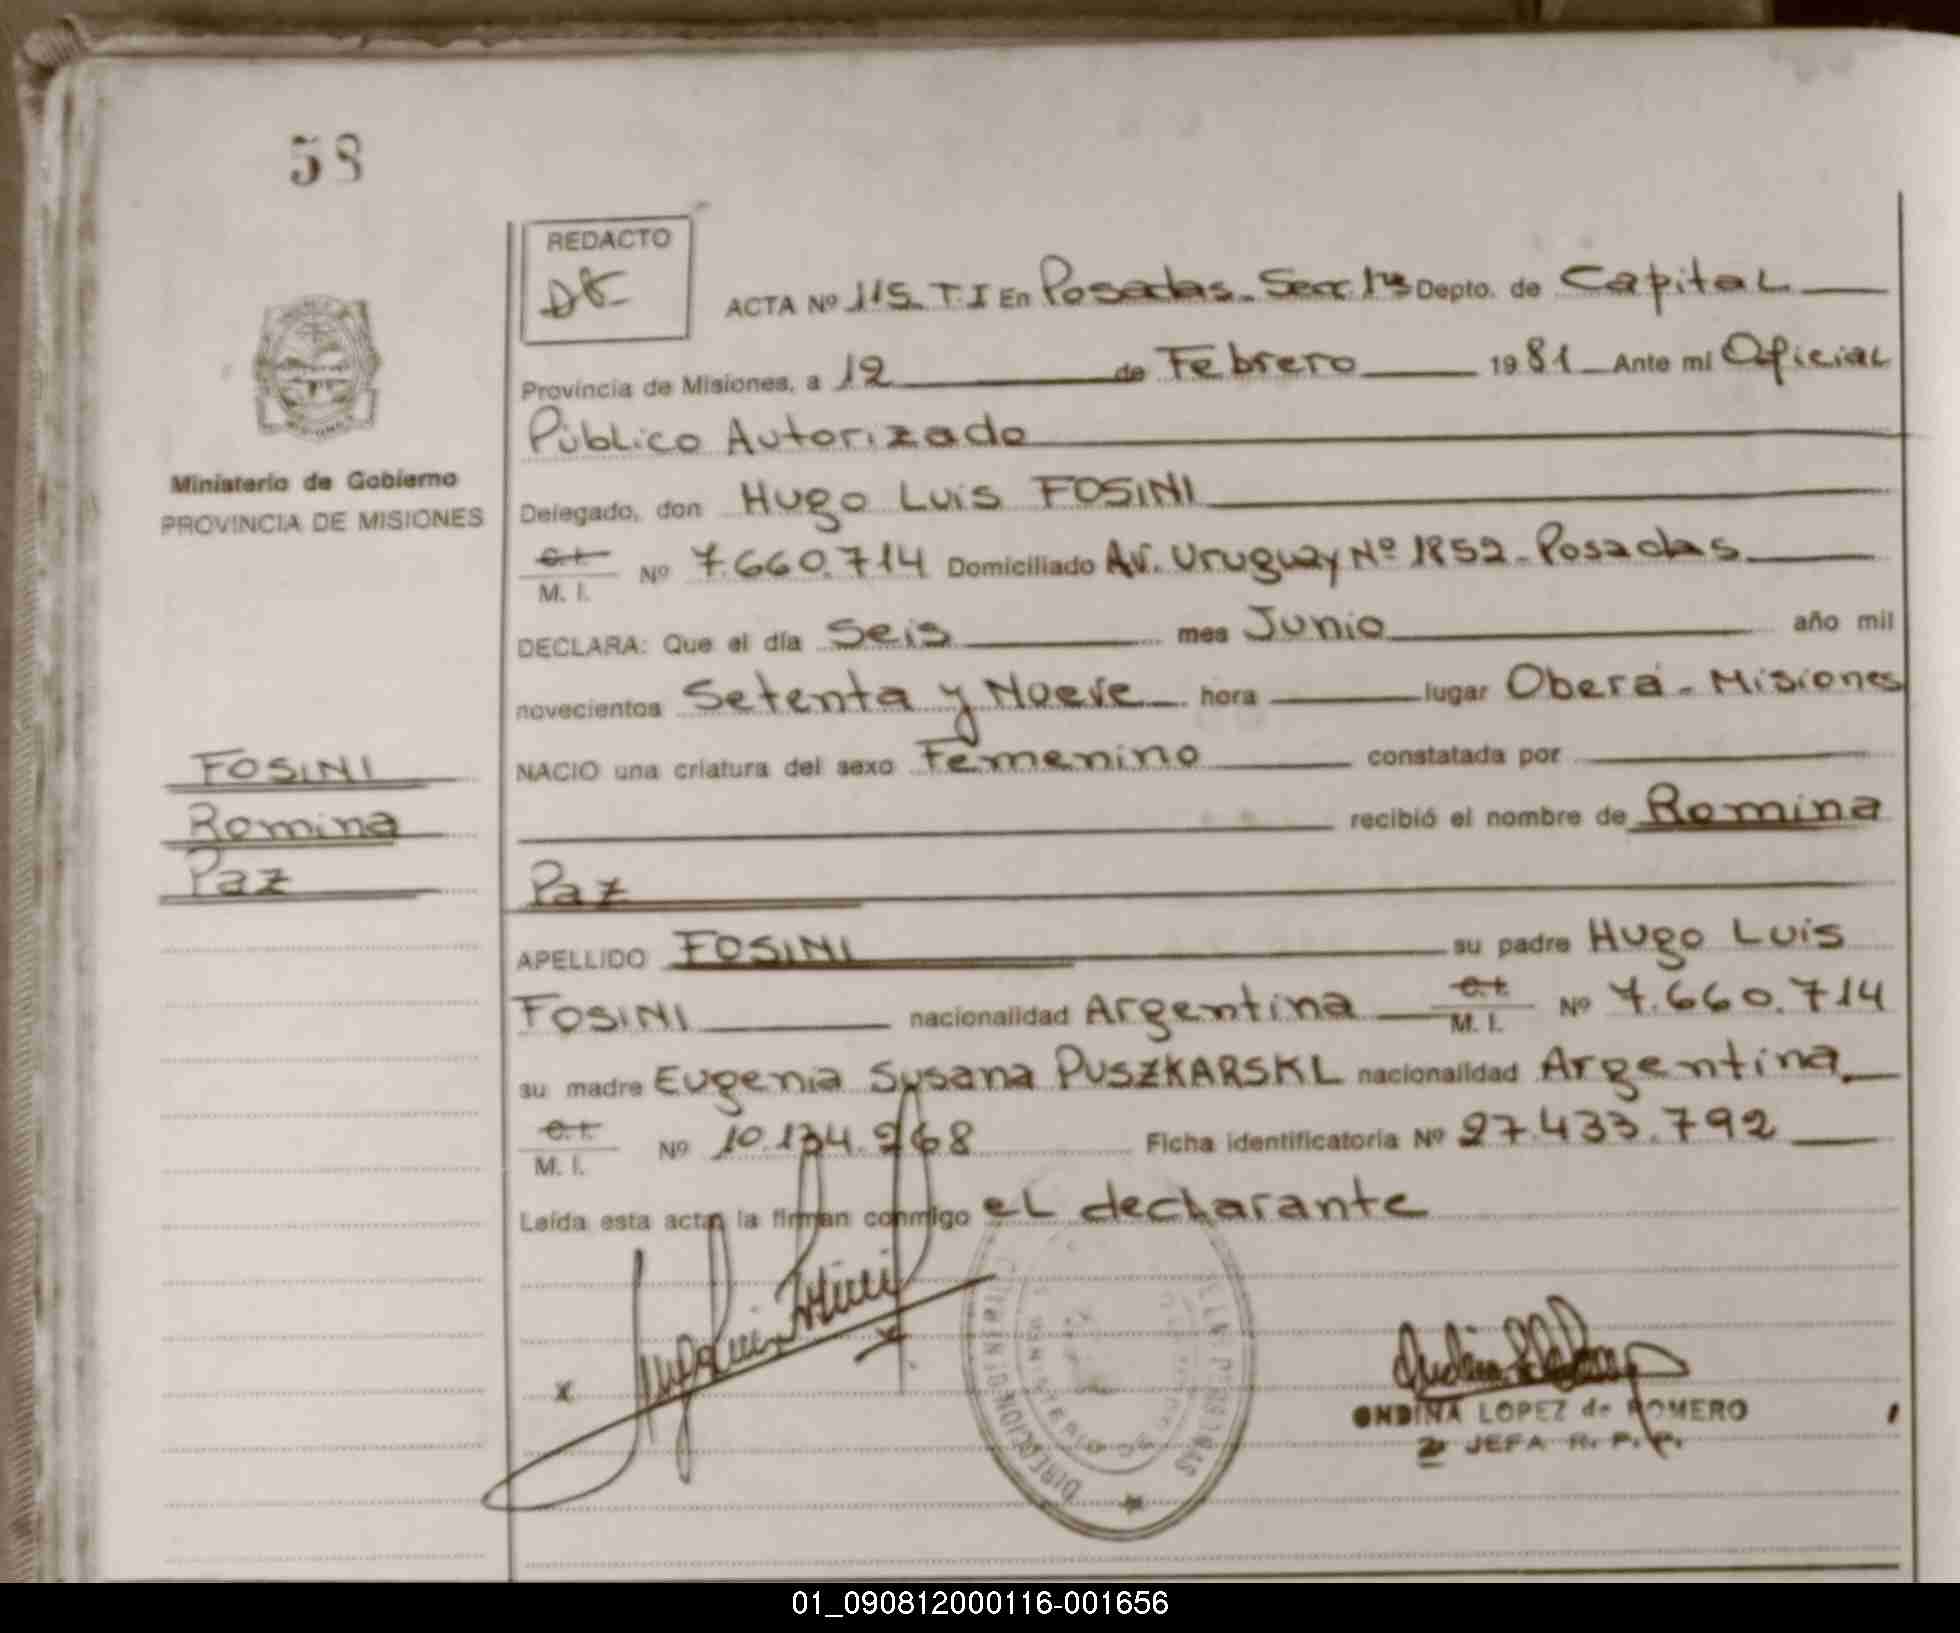 58
REDACTO
ACTA Nº 115 T.I En Posadas - Secc. 1ra Depto. de Capital
Provincia de Misiones, a 12 de Febrero 1981 Ante mi Oficial
Público Autorizado
Ministerio de Gobierno
PROVINCIA DE MISIONES
Delegado, don Hugo Luis FOSINI
C. I.
M. I. Nº 7.660.714 Domiciliado Av. Uruguay Nº 1852 - Posadas
DECLARA: Que el día Seis mes Junio año mil
novecientos Setenta y Nueve hora lugar Oberá - Misiones
FOSINI
Romina
Paz
NACIO una criatura del sexo Femenino constatada por
recibió el nombre de Romina
Paz
APELLIDO FOSINI su padre Hugo Luis
FOSINI nacionalidad Argentina C. I. M. I. Nº 7.660.714
su madre Eugenia Susana PUSZKARSKI nacionalidad Argentina
C. I.
M. I. Nº 10.134.268 Ficha identificatoria Nº 27.433.792
Leída esta acta, la firman conmigo el declarante
ONDINA LOPEZ de ROMERO
2º JEFA R. P. P.
01_090812000116-001656